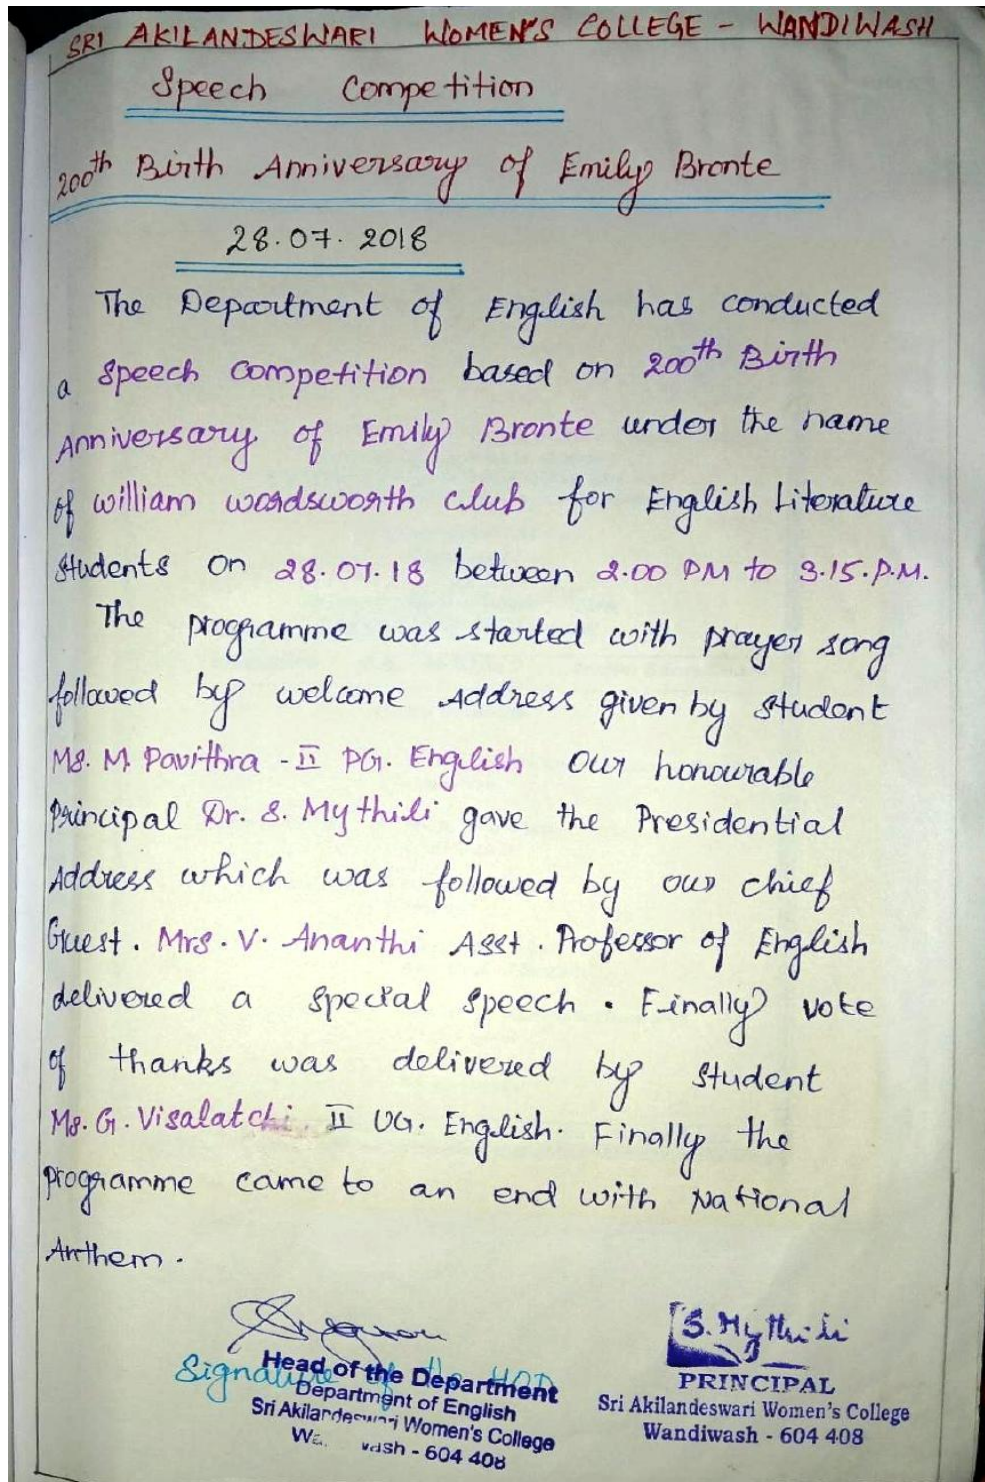 SRI AKILANDESWARI WOMEN'S COLLEGE - WANDIWASH
Speech Competition
200th Birth Anniversary of Emily Bronte
28.07.2018
The Department of English has conducted
a Speech Competition based on 200th Birth
Anniversary of Emily Bronte under the name
of william wordsworth club for English Literature
students on 28.07.18 between 2.00 PM to 3.15.P.M.
The programme was started with prayer song
followed by welcome Address given by student
Ms. M. Pavithra - II PG. English Our honourable
Principal Dr. S. Mythili gave the Presidential
Address which was followed by our chief
Guest. Mrs. V. Ananthi Asst. Professor of English
delivered a special speech. Finally vote
of thanks was delivered by student
Ms. G. Visalatchi. II UG. English. Finally the
programme came to an end with National
Anthem.
Signature of the HOD
Head of the Department
Department of English
Sri Akilandeswari Women's College
- 604 408
S. Mythili
PRINCIPAL
Sri Akilandeswari Women's College
Wandiwash - 604 408